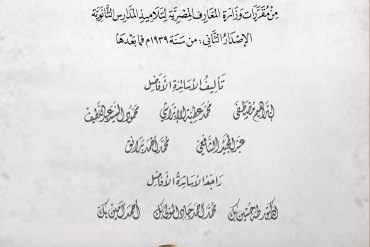 من مقررات وزارة المعارف المصرية لتلاميذ المدارس الثانوية
الإصدار الثاني: من سنة ١٩٣٩م فما بعدها
تأليف الأساتذة الأفاضل
إبراهيم مصطفى محمد عطية الإبراشي محمود السيد عبد اللطيف
عبد المجيد الشافعي محمد أحمد برانق
راجعه الأساتذة الأفاضل
الدكتور طه حسين بك محمد أحمد جاد المولى بك أحمد أمين بك